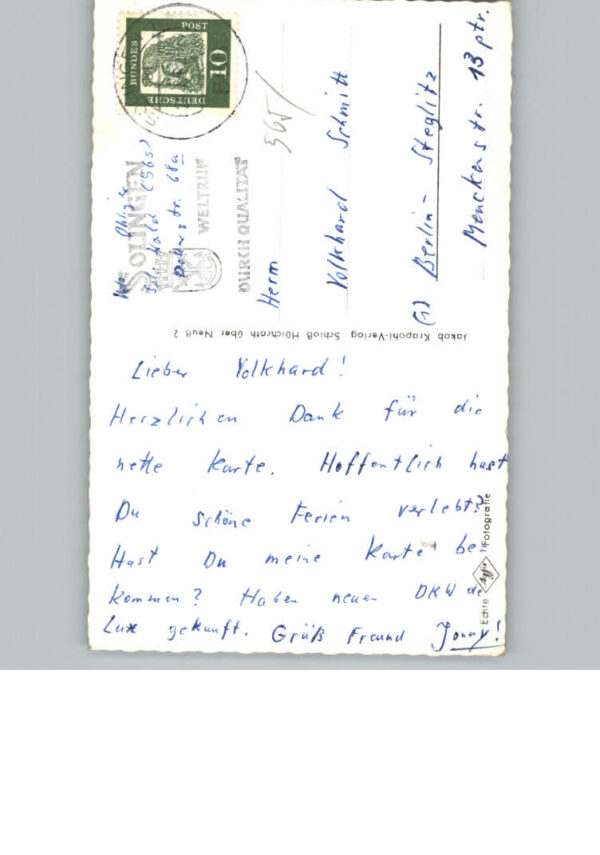 Lieber Volkhard!
Herzlichen Dank für die
nette Karte. Hoffentlich hast
Du schöne Ferien verlebt?
Hast Du meine Karte be
kommen? Haben neuen DKW de
Lux gekauft. Grüß Freund Jonny!
Herrn
Volkhard Schmitt
Berlin-Steglitz
Menckenstr. 13 ptr.
565/
DEUTSCHE BUNDES POST
10
SOLINGEN
WELTRUF
DURCH QUALITÄT
(565)
68a
Jakob Krapohl-Verlag Schloß Hülchrath über Neuß 2
Echte Agfa Fotografie